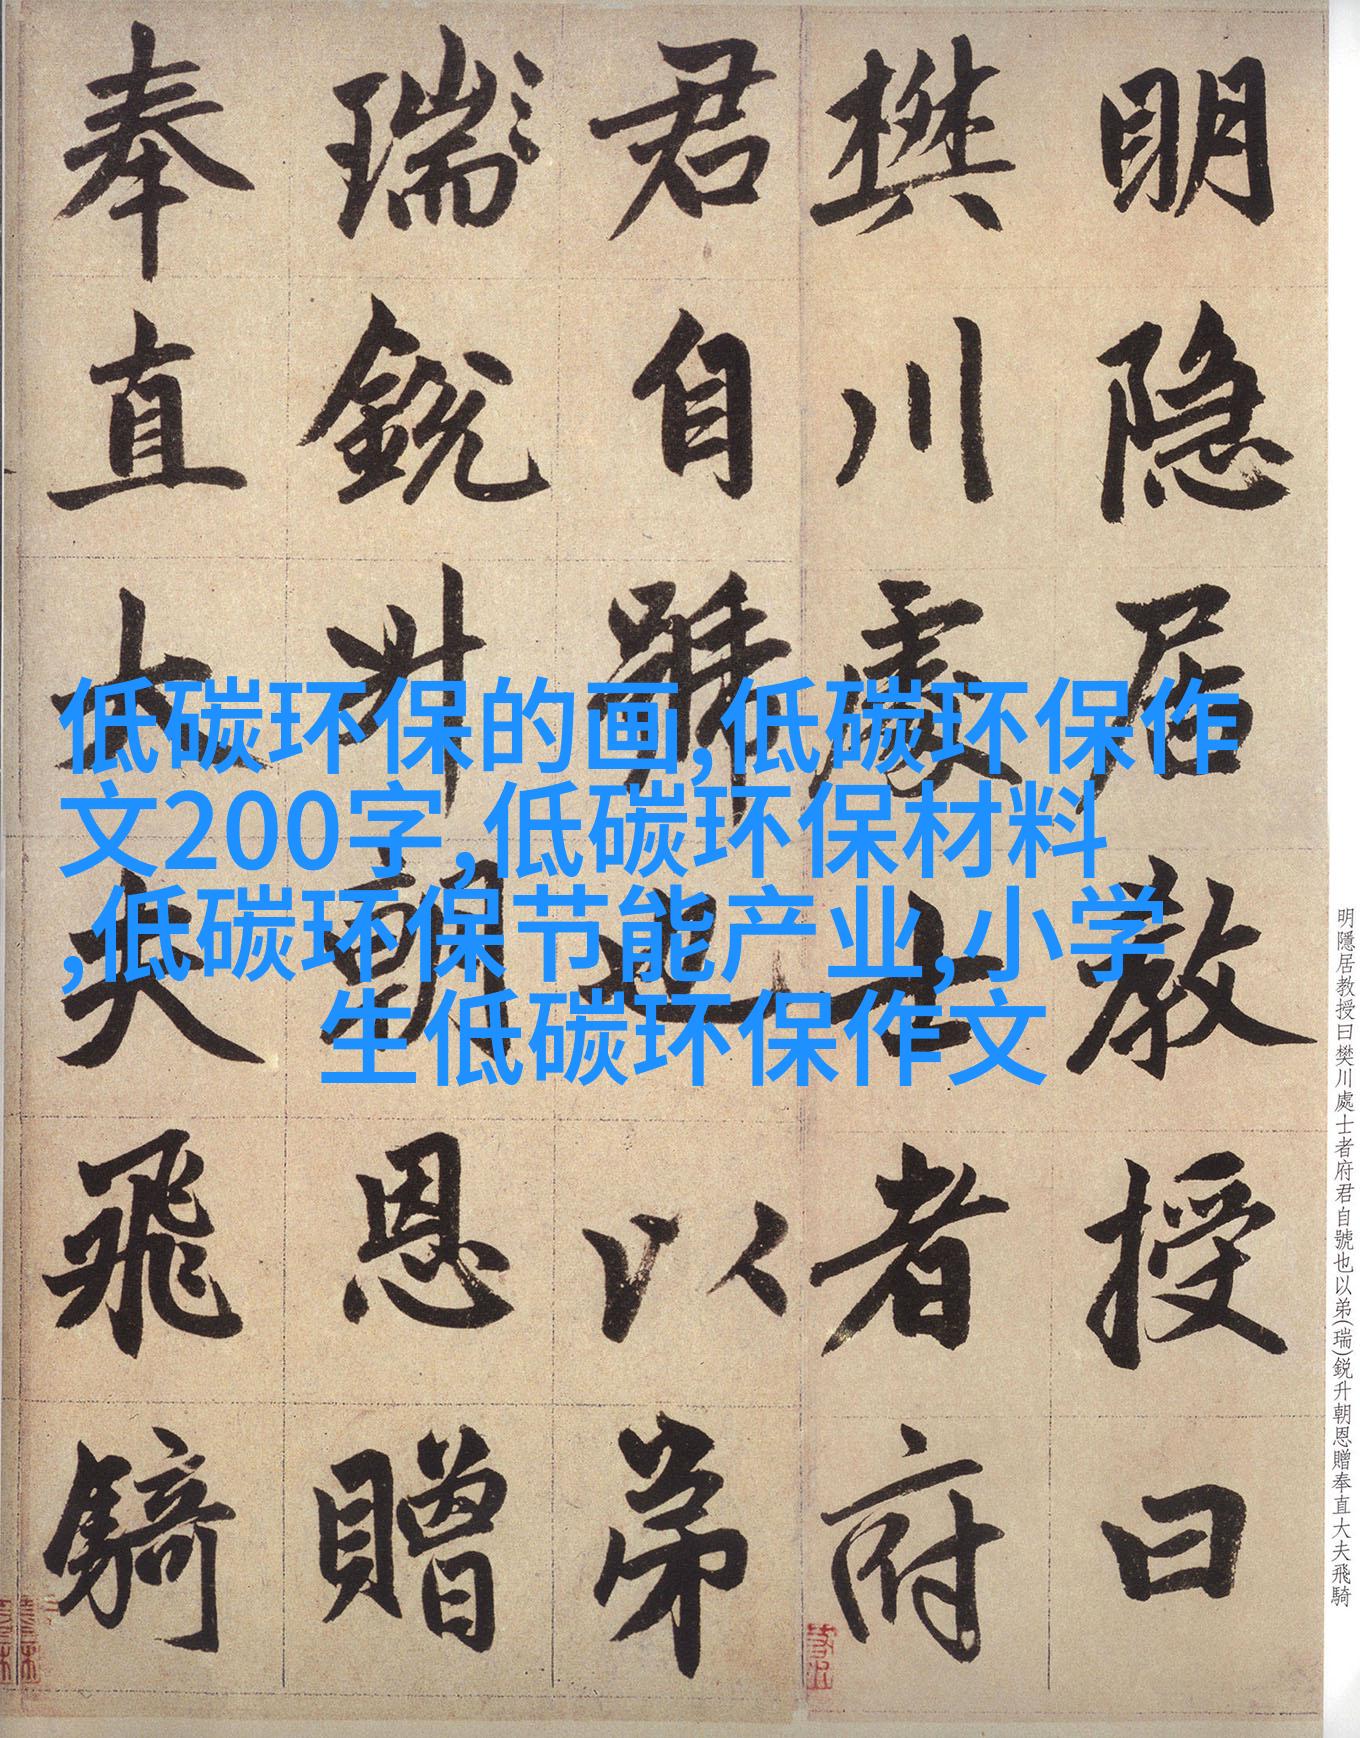 明隐居教授曰
樊川處士者府
君自號也以弟
瑞銳升朝恩贈
奉直大夫飛騎
低碳环保的画,低碳环保作
文200字,低碳环保材料
,低碳环保节能产业,小学
生低碳环保作文
明隱居教授曰樊川處士者府君自號也以弟(瑞)銳升朝恩贈奉直大夫飛騎